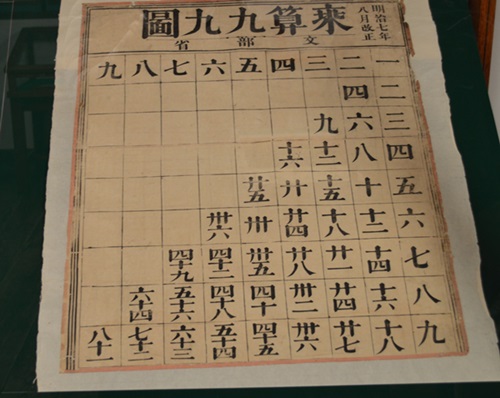 明治七年
八月改正
乘算九九圖
文部省
一 二 三 四 五 六 七 八 九
二 四
三 六 九
四 八 十二 十六
五 十 十五 廿 廿五
六 十二 十八 廿四 卅 卅六
七 十四 廿一 廿八 卅五 四十二 四十九
八 十六 廿四 卅二 四十 四十八 五十六 六十四
九 十八 廿七 卅六 四十五 五十四 六十三 七十二 八十一